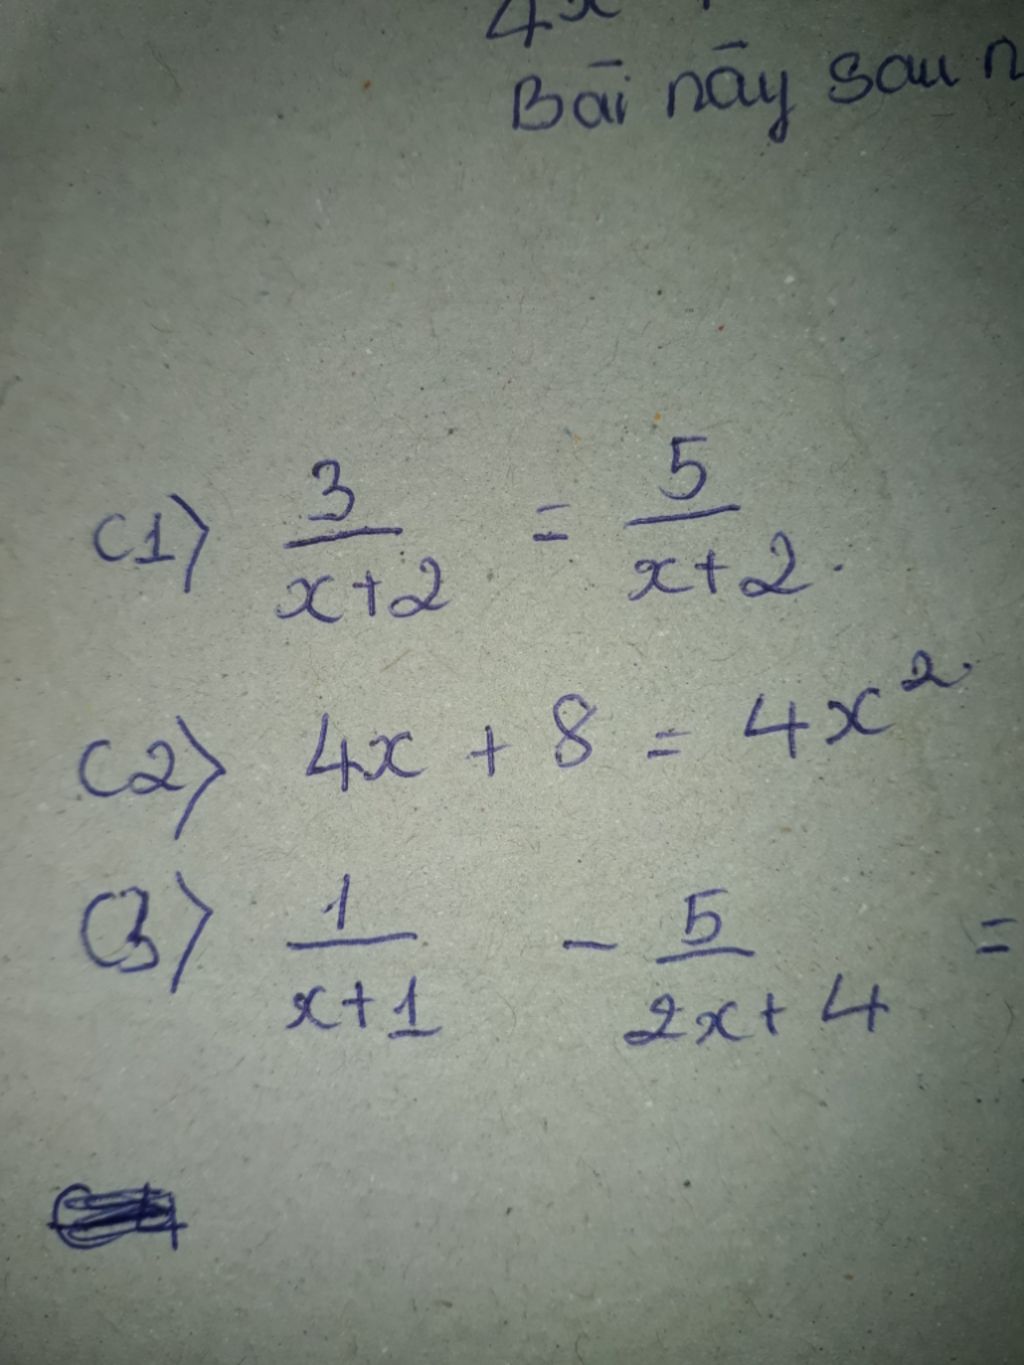 4x
Bāi nāy sau
C1) 3/(x+2) = 5/(x+2).
C2) 4x + 8 = 4x².
C3) 1/(x+1) - 5/(2x+4) =